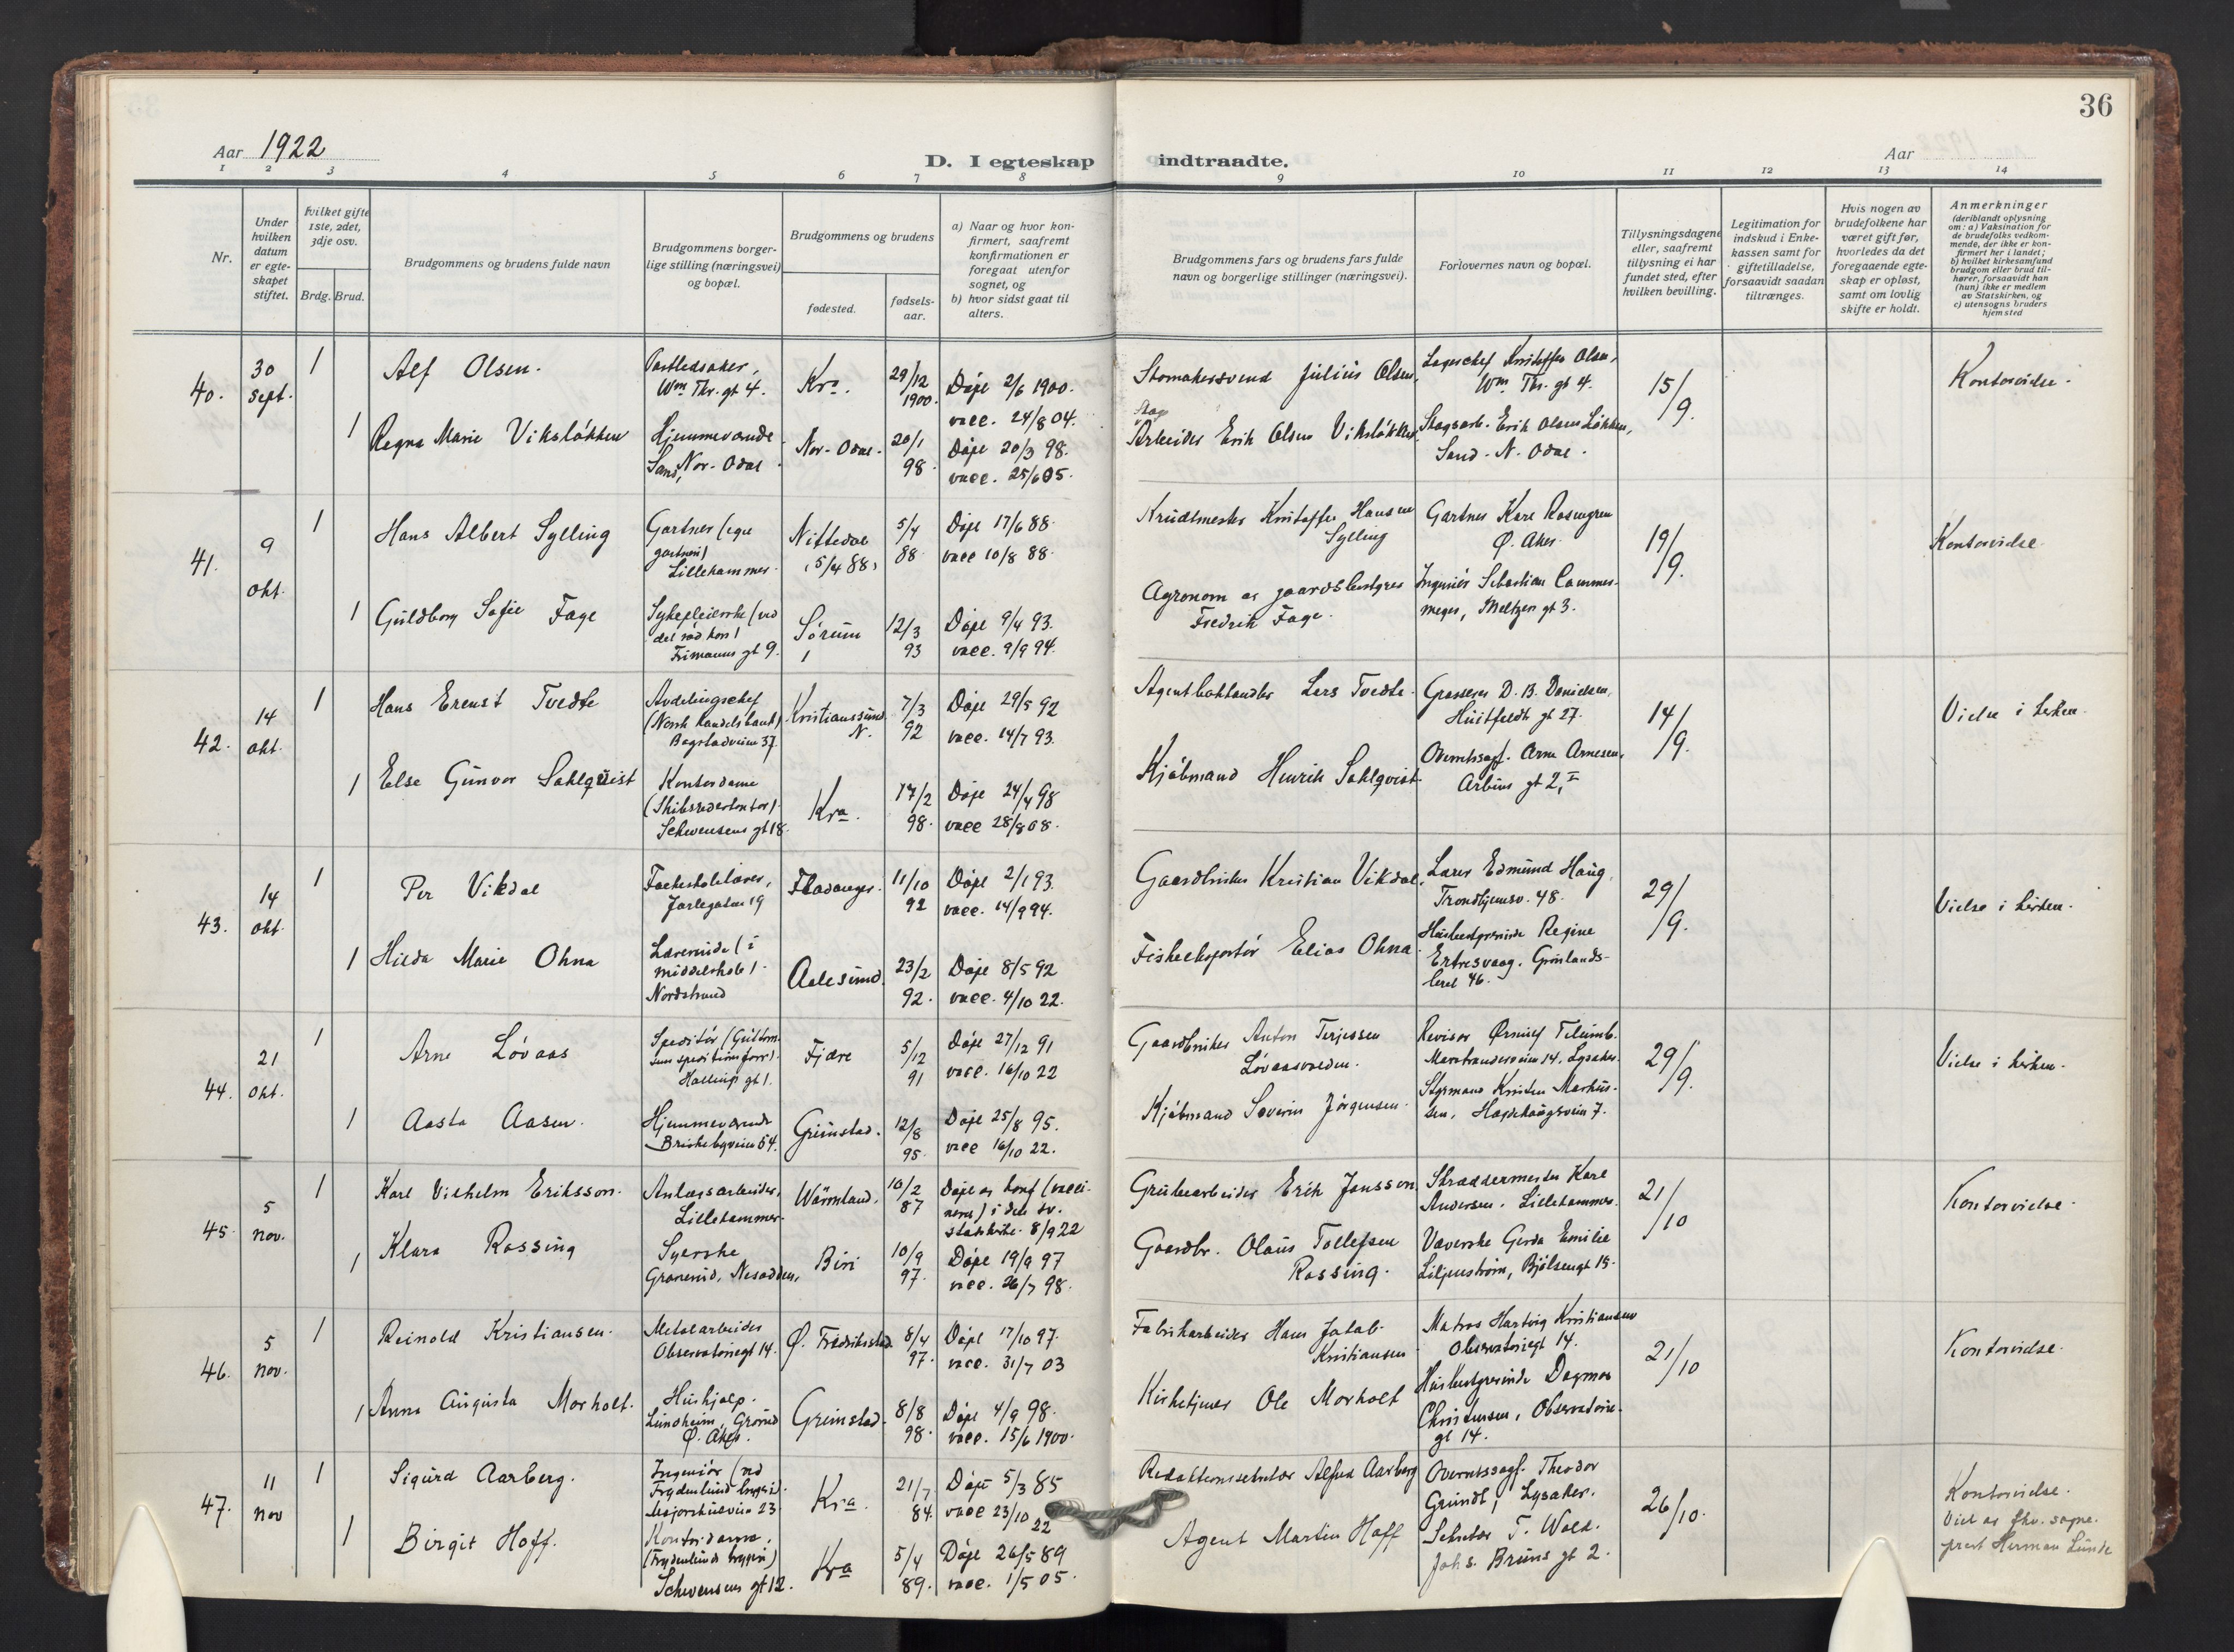 36
Aar 1922
D. I egteskap indtraadte.
Aar
1 2 3 4 5 6 7 8 9 10 11 12 13 14
Nr.
Under hvilken datum er egte-skapet stiftet.
hvilket gifte 1ste, 2det, 3dje osv.
Brdg. Brud.
Brudgommens og brudens fulde navn
Brudgommens borger-
lige stilling (næringsvei)
og bopæl.
Brudgommens og brudens
fødested.
fødsels-
aar.
a) Naar og hvor kon-
firmert, saafremt
konfirmationen er
foregaat utenfor
sognet, og
b) hvor sidst gaat til
alters.
Brudgommens fars og brudens fars fulde
navn og borgerlige stillinger (næringsvei).
Forlovernes navn og bopæl.
Tillysningsdagene
eller, saafremt
tillysning ei har
fundet sted, efter
hvilken bevilling.
Legitimation for
indskud i Enke-
kassen samt for
giftetilladelse,
forsaavidt saadan
tiltrænges.
Hvis nogen av
brudefolkene har
været gift før,
hvorledes da det
foregaaende egte-
skap er opløst,
samt om lovlig
skifte er holdt.
Anmerkninger
(deriblandt oplysning
om: a) Vaksination for
de brudefolks vedkom-
mende, der ikke er kon-
firmert her i landet;
b) hvilket kirkesamfund
brudgom eller brud til-
hører, forsaavidt han
(hun) ikke er medlem
av Statskirken, og
c) utensogns bruders
hjemsted
40. 30 Sept. 1 Alf Olsen.
Wm Thr. gt 4. Kra. 29/12 1900. Døpt 2/6 1900.
vacc. 24/8 04.
Julius Olsen, Kristoffer Olsen,
Wm. Thr. gt 4. 15/9. Kontorvielse.
1 Ragna Marie Viksløkken Hjemmeværende
Sand, Nor-Odal Nor-Odal. 20/1 98. Døpt 20/3 98.
vacc. 25/6 05.
Arbeider Erik Olsen Viksløkken Skogsarb. Erik Olsen Løkken,
Sand. N. Odal.
41. 9 Okt. 1 Hans Albert Sylling Gartner (eget
gartneri)
Lillehammer. Nittedal
(5/4 88) 5/4 88. Døpt 17/6 88.
vacc 10/8 88.
Kristoffer Hansen
Sylling Gartner Karl Rosengren
Ø. Aker. 19/9. Kontorvielse.
1 Guldborg Sofie Fage Sykepleierske (ved
det rød. kors)
Frimanns gt 9. Sørum 12/3 93 Døpt 9/4 93.
vacc. 9/9 94.
Agronom og gaardsbestyrer
Fredrik Fage. Ingeniør Sebastian Cammer-
meyer, Meltzers gt 3.
42. 14 Okt. 1 Hans Ernst Tvedte Avdelingschef
(Norsk handelsbank)
Bogstadveien 37. Kristianssund
N. 7/3 92 Døpt 29/5 92
vacc. 14/7 93.
Lars Tvedte. Grosserer D. B. Danielsen,
Huitfeldts gt 27. 14/9. Vielse i kirken.
1 Else Gunvor Sahlquist Kontordame
(Skibsrederkontor)
Schwensens gt 18. Kra. 17/2 98. Døpt 24/4 98
vacc 28/8 08.
Kjøbmand Henrik Sahlqvist Overretssagf. Arne Arnesen,
Arbins gt 2, I
43. 14 Okt. 1 Per Vikdal
Jarlegaten 19 11/10 92 Døpt 2/1 93.
vacc. 14/9 94.
Gaardbruker Kristian Vikdal, Lærer Edmund Haug,
Trondhjemsv. 48. 29/9. Vielse i kirken.
1 Hilda Marie Ohna Lærerinde (i
middelskole)
Nordstrand Aalesund. 23/2 92. Døpt 8/5 92
vacc. 4/10 22.
Fiskeeksportør Elias Ohna Husbestyrerinde Regine
Ertresvaag. Grønlands-
leret 46.
44. 21 Okt. 1 Arne Løvaas Speditør (Guttorm-
sens speditionsforr)
Hallings gt 1. Fjære 5/12 91 Døpt 27/12 91
vacc. 16/10 22
Gaardbruker Anton Terjessen
Revisor
14. Lysaker. 29/9. Vielse i kirken.
1 Aasta Aasen. Hjemmeværende
Briskebyveien 54. Grimstad. 12/8 95. Døpt 25/8 95.
vacc 16/10 22.
Kjøbmand Severin Jørgensen Styrmand Kristen Markus-
sen, Hegdehaugsvein 7.
45. 5 nov. 1 Karl Vilhelm Eriksson. Anlægsarbeider,
Lillehammer. Wärmland. 10/2 87 Døpt og konf (vacci-
nert) i den sv.
statskirke 8/9 22
Grubearbeider Erik Jonsson Skræddermester Karl
Andersen. Lillehammer. 21/10 Kontorvielse.
1 Klara Rossing Syerske
Granerud, Nesodden, Biri 10/9 97. Døpt 19/9 97
vacc. 26/7 98.
Gaardbr. Olaus Tollefsen
Rossing. Væverske Gerda Emilie
Liljenstrøm, Bjølsengt 15.
46. 5 nov. 1 Reinold Kristiansen. Metalarbeider
Observatoriegt 14. Ø. Fredrikstad 8/4 97. Døpt 17/10 97.
vacc. 31/7 03
Fabrikarbeider Hans Jakob
Kristiansen Matros Hartvig Kristiansen
Observatoriegt 14. 21/10 Kontorvielse.
1 Anna Augusta Morholt. Hushjelp.
Lundheim, Grorud
Ø. Aker. Grimstad. 8/8 98. Døpt 4/9 98.
vacc. 15/6 1900.
Kirketjener Ole Morholt Husbestyrerinde Dagmar
Christensen, Observatorie-
gt 14.
47. 11 nov 1 Sigurd Aarberg. Ingeniør (ved
Frydenlund bryggeri).
Majorstuveien 23 Kra. 21/7 84. Døpt 5/3 85
vacc 23/10 22
Redaktionssekretær Alfred Aarberg Overretssagf. Theodor
Grundt, Lysaker. 26/10. Kontorvielse.
Viet av fhv. sogne-
prest Herman Lunde
1 Birgit Hoff. Kontordame,
(Frydenlunds bryggeri)
Schwensens gt 12. Kra 5/4 89. Døpt 26/5 89
vacc. 1/5 05.
Agent Martin Hoff Sekretær T. Wold.
Johs. Bruns gt 2.